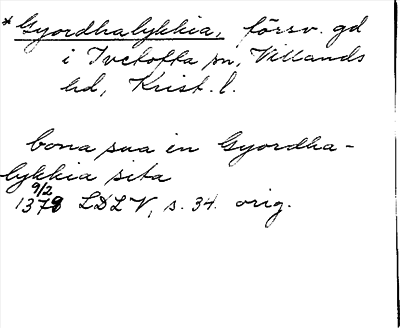 *Gyordhalykkia, försv. gd
i Ivetofta sn, Villands
hd, Krist. l.
bona sua in Gyordha-
lykkia sita
9/2
1378 LDLV, s. 34. orig.